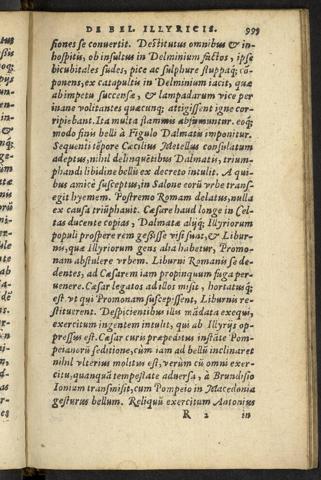 DE BEL. ILLYRICIS. 999
siones se convertit. Destitutus omnibus & in-
hospitis, ob insultus in Delminium factos, ipse
bicubitales sudes, pice ac sulphure stuppaq; cō-
ponens, ex catapultis in Delminium iacit, quæ
ab impetu succensæ, & lampadarum vice per
inane volitantes quæcunq; attigissent igne cor-
ripiebant. Ita multa flammis absumuntur. eoq;
modo finis belli à Figulo Dalmatis imponitur.
Sequenti tēpore Cæcilius Metellus consulatum
adeptus, nihil delinquētibus Dalmatis, trium-
phandi libidine bellū ex decreto intulit. A qui-
bus amicè susceptus, in Salone eorū vrbe transe-
git hyemem. Postremo Romam delatus, nulla
ex causa triūphauit. Cæsare haud longe in Cel-
tas ducente copias, Dalmatæ aliiq; Illyriorum
populi prospere rem gessisse visi sunt, & Libur-
ni, quæ Illyriorum gens alia habetur, Promo-
nam abstulere vrbem. Liburni Romanis se de-
dentes, ad Cæsarem iam propinquum fuga per-
uenere. Cæsar legatos ad illos misit, hortatusq;
est vt qui Promonam suscepissent, Liburnis re-
stituerent. Despicientibus illis mādata exequi,
exercitum ingentem intulit, qui ab Illyriis op-
pressus est. Cæsar curis præpeditus instāte Pom-
peianorū seditione, cùm iam ad bellū inclinaret
nihil vlterius molitus est, verùm cū omni exer-
citu, quanquā tempestate aduersa, à Brundisio
Ionium transmisit, cum Pompeio in Macedonia
gesturus bellum. Reliquū exercitum Antonius
R 2 in